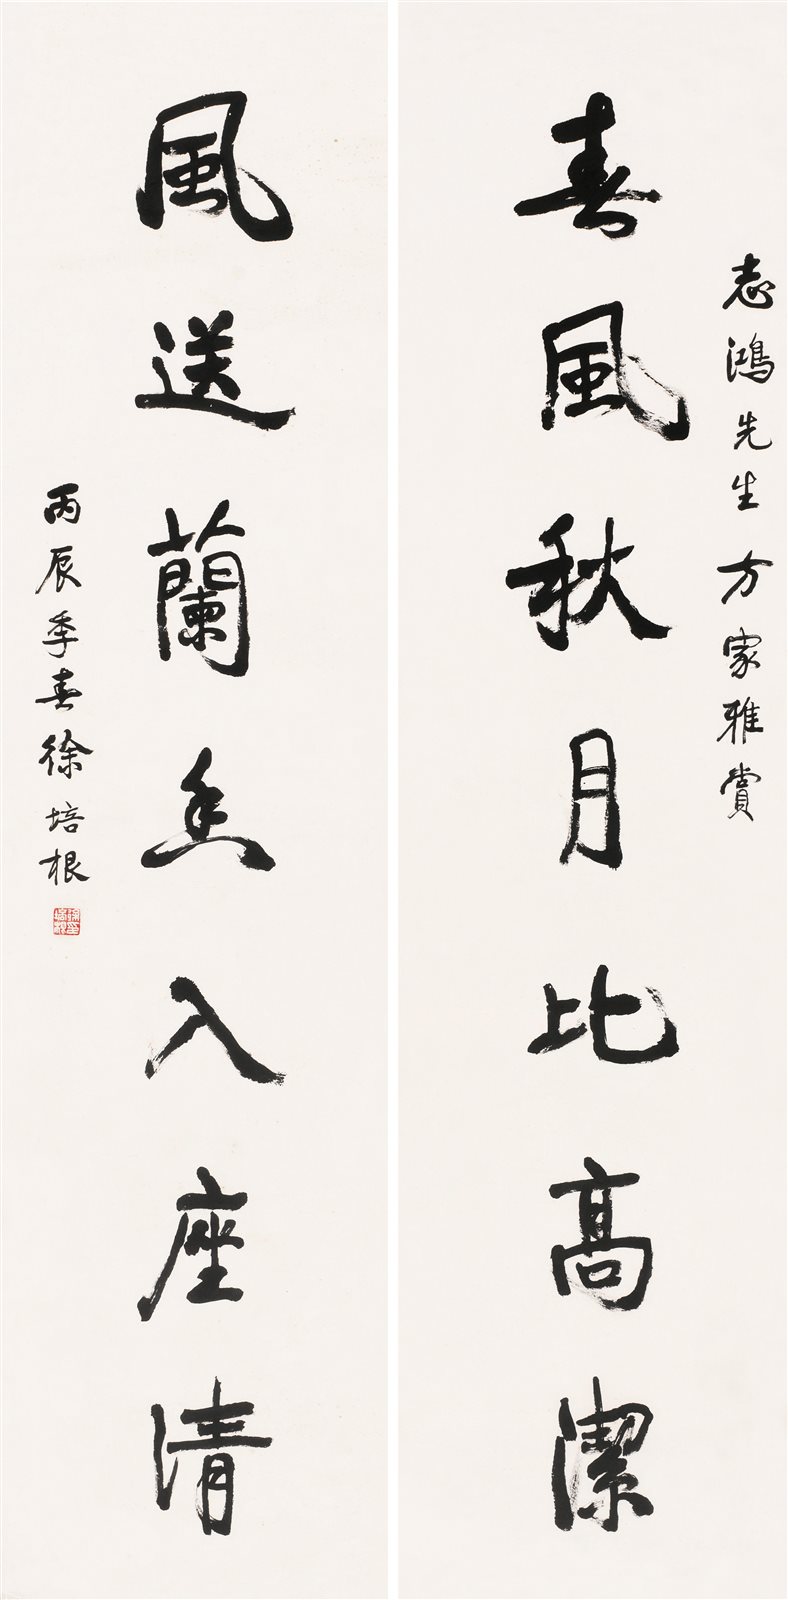 志鴻先生方家雅賞
春風秋月比高潔
風送蘭香入座清
丙辰季春徐培根